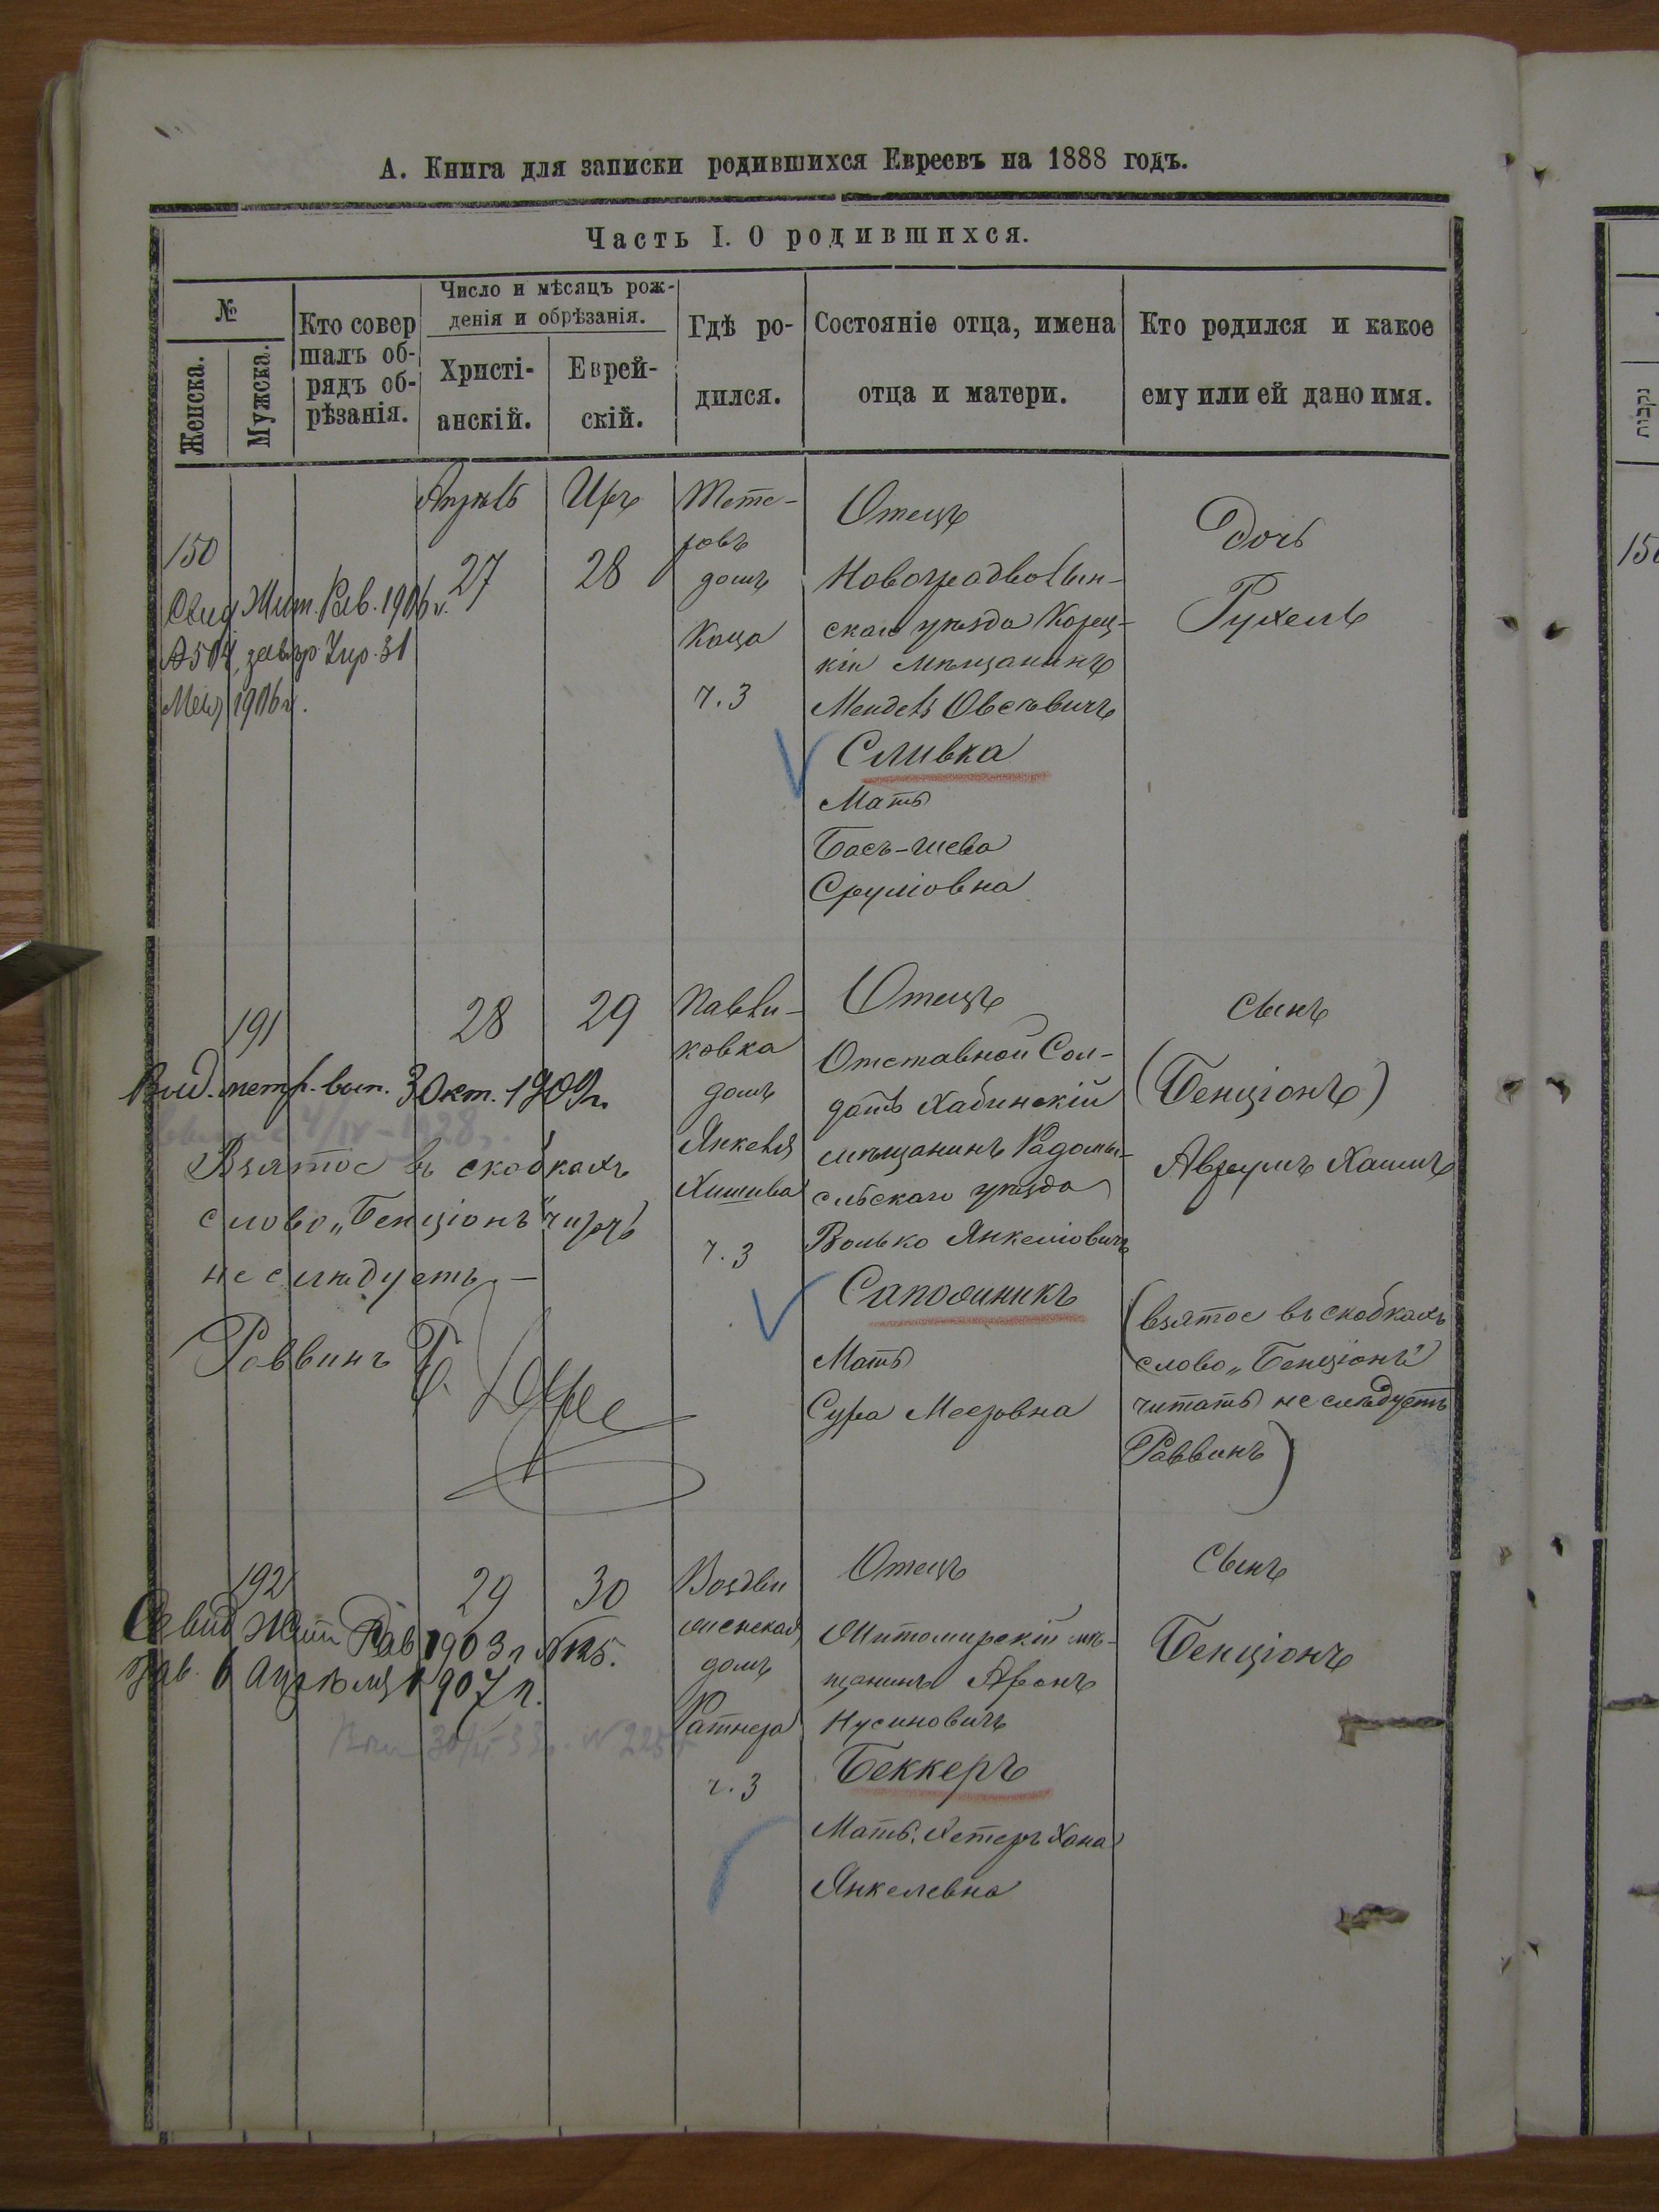 А. Книга для записки родившихся Евреевъ на 1888 годъ.
Часть I. О родившихся.
№
Женска.
Мужска.
Кто совер
шалъ об-
рядъ об-
рѣзанія.
Число и мѣсяцъ рож-
денія и обрѣзанія.
Христі-
анскій.
Еврей-
скій.
Гдѣ ро-
дился.
Состояніе отца, имена
отца и матери.
Кто родился и какое
ему или ей дано имя.
נקבות
150
Апрѣль
27
Иръ
28
Свид Жит. Рав. 1906 г.
31
Мая 1906 г.
Тете-
ровъ
домъ
Каца
ч. 3
Отецъ
Новоградволын-
скаго уѣзда Корец-
кій мѣщанинъ
Мендель Овсѣвичъ
Сливка
Мать
Бась-шева
Сруліовна
Дочь
Рухель
150
191
28
29
Выд. метр. вып. 3 Окт. 1909 г.
Взятое въ скобкахъ
слово „Бенціонъ"
не слѣдуетъ. —
Раввинъ
Павли-
ковка
домъ
Янкеля
ч. 3
Отецъ
Отставной Сол-
датъ Хабинскій
мѣщанинъ Радомы-
сльскаго уѣзда
Волько Янкеліовичъ
Сапожникъ
Мать
Сура Мееровна
Сынъ
(Бенціонъ)
Аврумъ Хаимъ
(взятое въ скобкахъ
слово „Бенціонъ"
читать не слѣдуетъ
Раввинъ)
192
29
30
Свид Жит Рав 1903 г №125.
6 Апрѣля 1907 г.
Воздви
женская
домъ
Ратнера
ч. 3
Отецъ
Житомирскій мѣ-
щанинъ Аронъ
Нусиновичъ
Беккеръ
Мать. Хана
Янкелевна
Сынъ
Бенціонъ